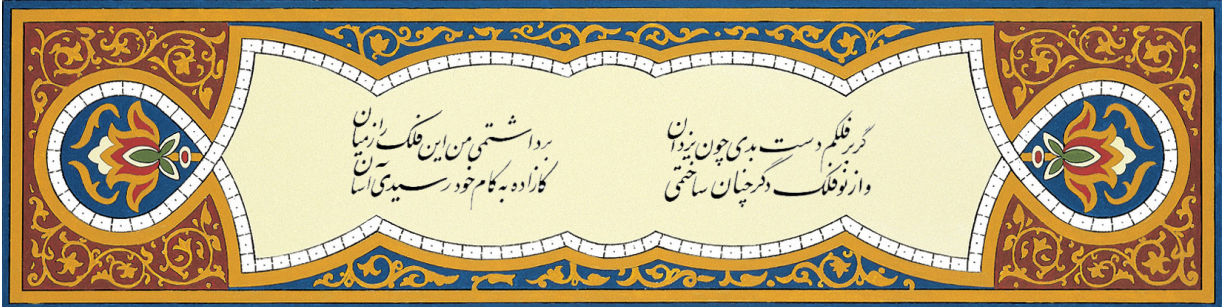 گر بر فلکم دست بدی چون یزدان
برداشتمی من این فلک را ز میان
وز نو فلک دگر چنان ساختمی
کازاده به کام خود رسیدی آسان